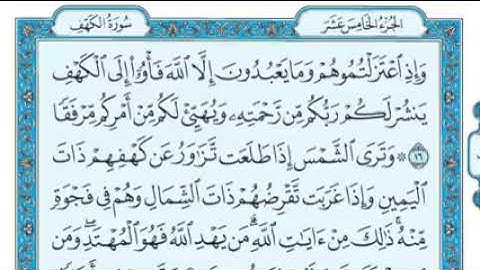 سُورَةُ الكَهْفِ
الجُزْءُ الخَامِسَ عَشَرَ
وَإِذِ ٱعْتَزَلْتُمُوهُمْ وَمَا يَعْبُدُونَ إِلَّا ٱللَّهَ فَأْوُۥٓا۟ إِلَى ٱلْكَهْفِ
يَنشُرْ لَكُمْ رَبُّكُم مِّن رَّحْمَتِهِۦ وَيُهَيِّئْ لَكُم مِّنْ أَمْرِكُم مِّرْفَقًا
١٦ ۞ وَتَرَى ٱلشَّمْسَ إِذَا طَلَعَت تَّزَٰوَرُ عَن كَهْفِهِمْ ذَاتَ
ٱلْيَمِينِ وَإِذَا غَرَبَت تَّقْرِضُهُمْ ذَاتَ ٱلشِّمَالِ وَهُمْ فِى فَجْوَةٍ
مِّنْهُ ۚ ذَٰلِكَ مِنْ ءَايَٰتِ ٱللَّهِ ۗ مَن يَهْدِ ٱللَّهُ فَهُوَ ٱلْمُهْتَدِ ۖ وَمَن